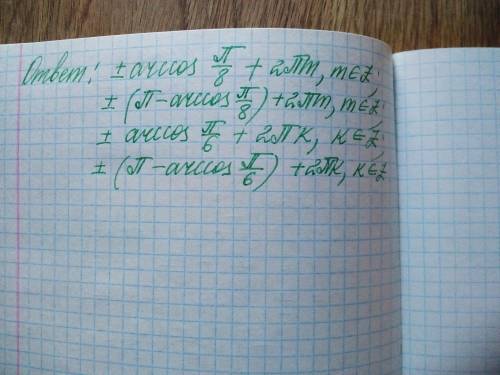 Ответ: ± arccos π/8 + 2πm, m∈Z;
± (π - arccos π/8) + 2πm, m∈Z;
± arccos π/6 + 2πk, k∈Z;
± (π - arccos π/6) + 2πk, k∈Z